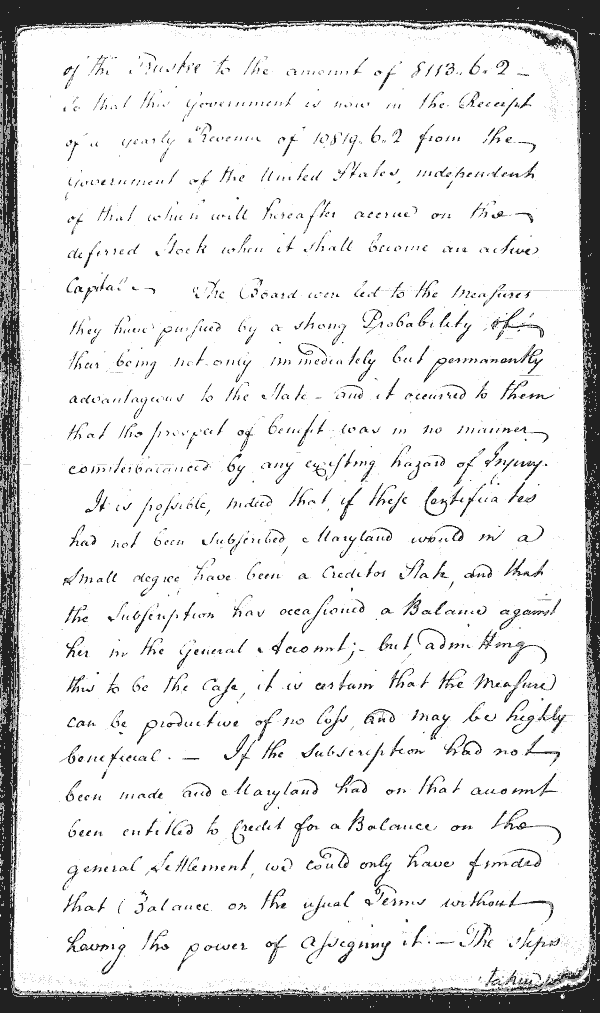 of the Trustee to the amount of 8113..6..2 –
So that this Government is now in the Receipt
of a yearly Revenue of 10819..6..2 from the
Government of the United States, independent
of that which will hereafter accrue on the
deferred Stock when it shall become an active
Capital – The Board were led to the measures
they have pursued by a strong Probability of
their being not only immediately but permanently
advantageous to the State – and it occurred to them
that the prospect of benefit was in no manner
counterbalanced by any existing hazard of Injury.
It is possible, indeed that if these Certificates
had not been Subscribed, Maryland would in a
small degree have been a Creditor State, and that
the Subscription has occasioned a Balance against
her in the General Account; – but, admitting
this to be the Case, it is certain that the Measure
can be productive of no loss, and may be highly
beneficial. – If the Subscription had not
been made and Maryland had on that account
been entitled to Credit for a Balance on the
general Settlement, we could only have funded
that Balance on the usual Terms without
having the power of assigning it. – The steps
taken